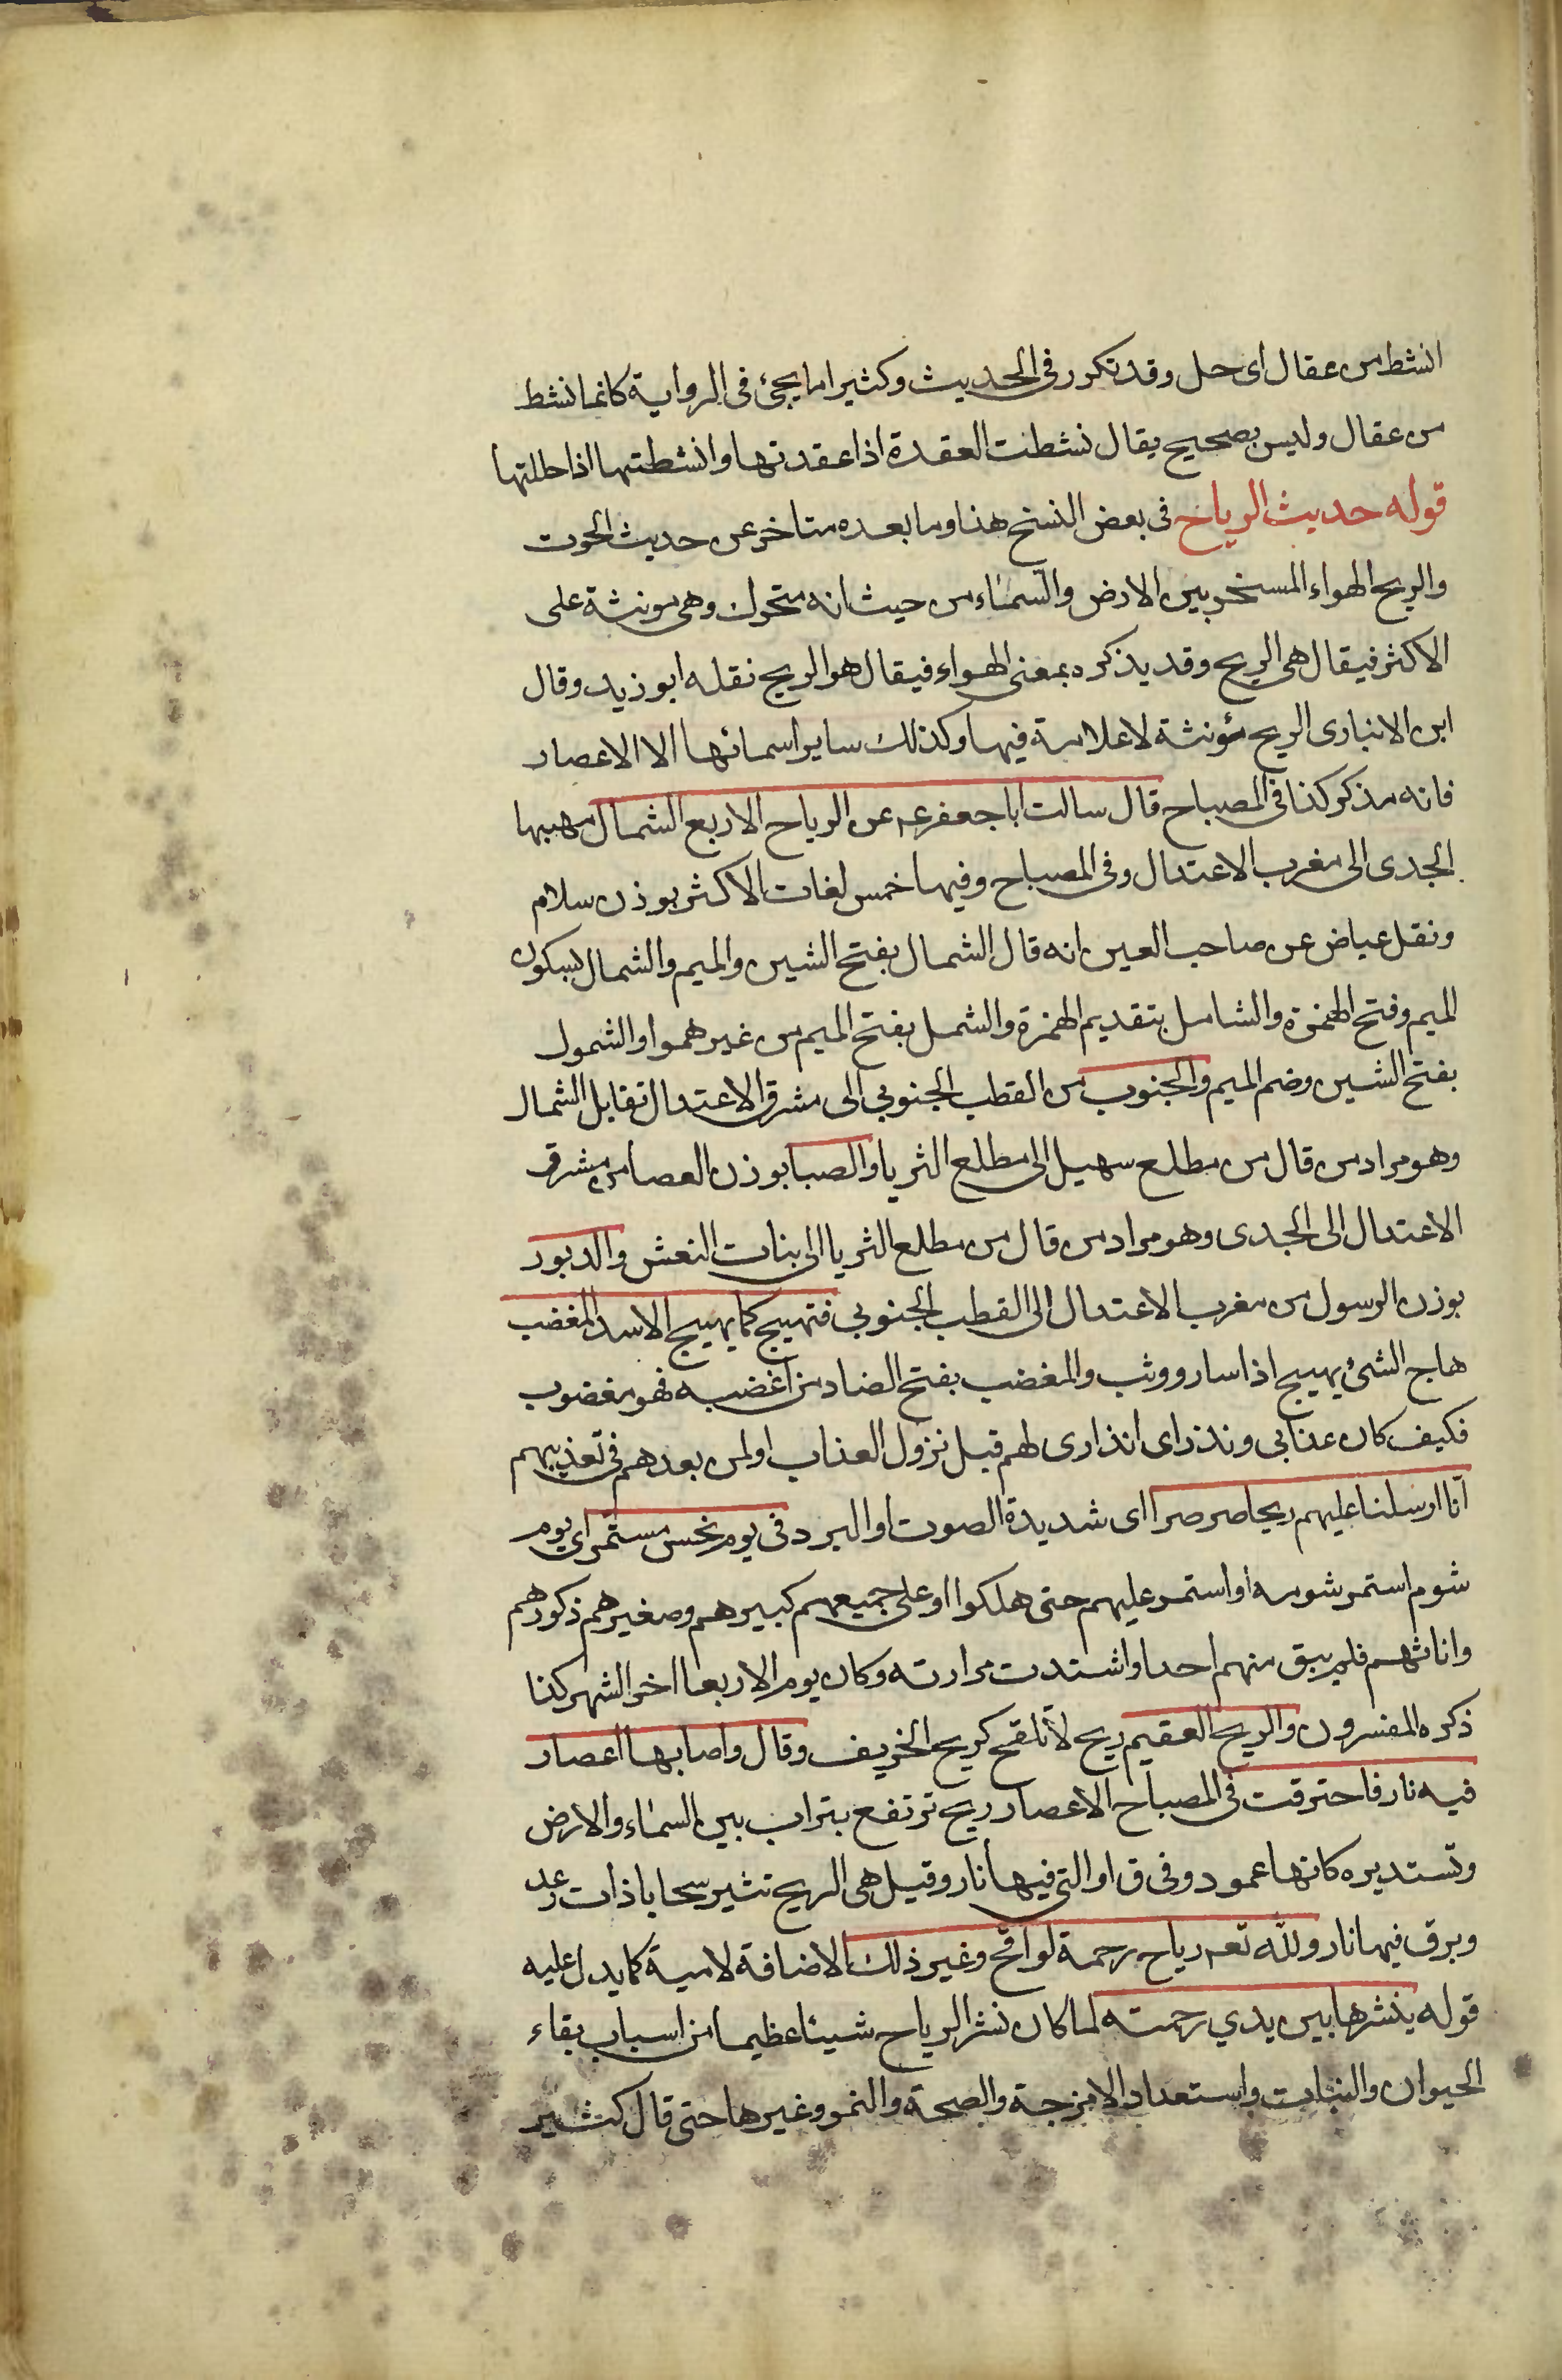 انشط من عقال اى حل وقد تكرر فى الحديث وكثيرا ما يجئ فى الرواية كانما نشط
من عقال وليس بصحيح يقال نشطت العقدة اذا عقدتها وانشطتها اذا حللتها
قوله حديث الرياح فى بعض النسخ هنا وما بعده متاخر عن حديث الحوت
والريح الهواء المسخر بين الارض والسماء من حيث انه متحرك وهى مونثة على
الاكثر فيقال هى الريح وقد يذكره بمعنى الهواء فيقال هو الريح نقله ابو زيد وقال
ابن الانبارى الريح مؤنثة لا علامة فيها وكذلك ساير اسمائها الا الاعصار
فانه مذكر كذا فى المصباح قال سالت ابا جعفر عم عن الرياح الاربع الشمال مهبها
الجدى الى مغرب الاعتدال وفى المصباح وفيها خمس لغات الاكثر بوزن سلام
ونقل عياض عن صاحب العين انه قال الشمال بفتح الشين والميم والشمال بسكون
الميم وفتح الهمزة والشامل بتقديم الهمزة والشمل بفتح الميم من غير همز والشمول
بفتح الشين وضم الميم والجنوب من القطب الجنوبي الى مشرق الاعتدال تقابل الشمال
وهو مراد من قال من مطلع سهيل الى مطلع الثريا والصبا بوزن العصا من مشرق
الاعتدال الى الجدى وهو مراد من قال من مطلع الثريا الى بنات النعش والدبور
بوزن الرسول من مغرب الاعتدال الى القطب الجنوبي فتهيج كما يهيج الاسد المغضب
هاج الشئ يهيج اذا سار ووثب والمغضب بفتح الضاد من اغضبه فهو مغضوب
فكيف كان عذابي ونذر اى انذارى لهم قبل نزول العذاب او لمن بعدهم فى تعذيبهم
انا ارسلنا عليهم ريحا صرصرا اى شديدة الصوت او البرد فى يوم نحس مستمر اى يوم
شوم استمر شومه او استمر عليهم حتى هلكوا او على جميعهم كبيرهم وصغيرهم ذكورهم
واناثهم فلم يبق منهم احدا واشتدت مرارته وكان يوم الاربعا اخر الشهر كذا
ذكره المفسرون والريح العقيم ريح لا تلقح كريح الخريف وقال واصابها اعصار
فيه نار فاحترقت فى المصباح الاعصار ريح ترتفع بتراب بين السماء والارض
وتستديره كانها عمود وفى ق او التى فيها نار وقيل هى الريح تثير سحابا ذات رعد
وبرق فيها نار ولله تعم رياح رحمة لواقح وغير ذلك الاضافة لامية كما يدل عليه
قوله ينشرها بين يدي رحمته لما كان نشر الرياح شيئا عظيما من اسباب بقاء
الحيوان والنبات واستعداد الامزجة والصحة والنمو وغيرها حتى قال كثير